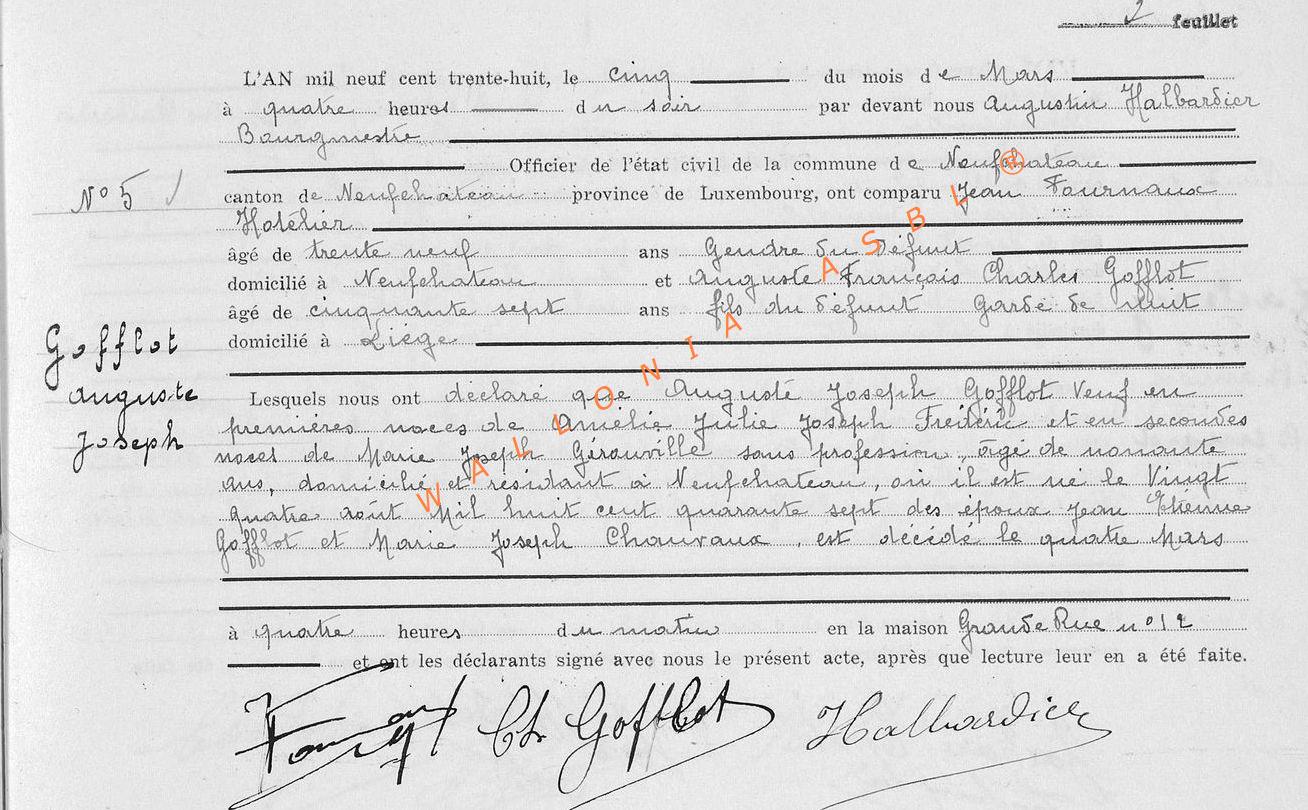 2 feuillet
L'AN mil neuf cent trente-huit, le cinq du mois de Mars
à quatre heures du soir par devant nous Augustin Halbardier
Bourgmestre
Officier de l'état civil de la commune de Neufchateau
N° 5
canton de Neufchateau province de Luxembourg, ont comparu Jean Fournaux
Hotelier
âgé de trente neuf ans Gendre du défunt
domicilié à Neufchateau et Auguste François Charles Gofflot
âgé de cinquante sept ans fils du défunt Garde de nuit
domicilié à Liége
Gofflot
Auguste
Joseph
Lesquels nous ont déclaré que Auguste Joseph Gofflot Veuf en
premières noces de Amélie Julie Joseph Fréderic et en secondes
noces de Marie Joseph Gérouville sans profession, âgé de nonante
ans, domicilié et résidant à Neufchateau, où il est né le Vingt
quatre août Mil huit cent quarante sept des époux Jean Etienne
Gofflot et Marie Joseph Chauvaux, est décédé le quatre Mars
à quatre heures du matin en la maison Grande Rue n° 12
et ont les déclarants signé avec nous le présent acte, après que lecture leur en a été faite.
Ch Gofflot Halbardier
WALLONIA ASBL